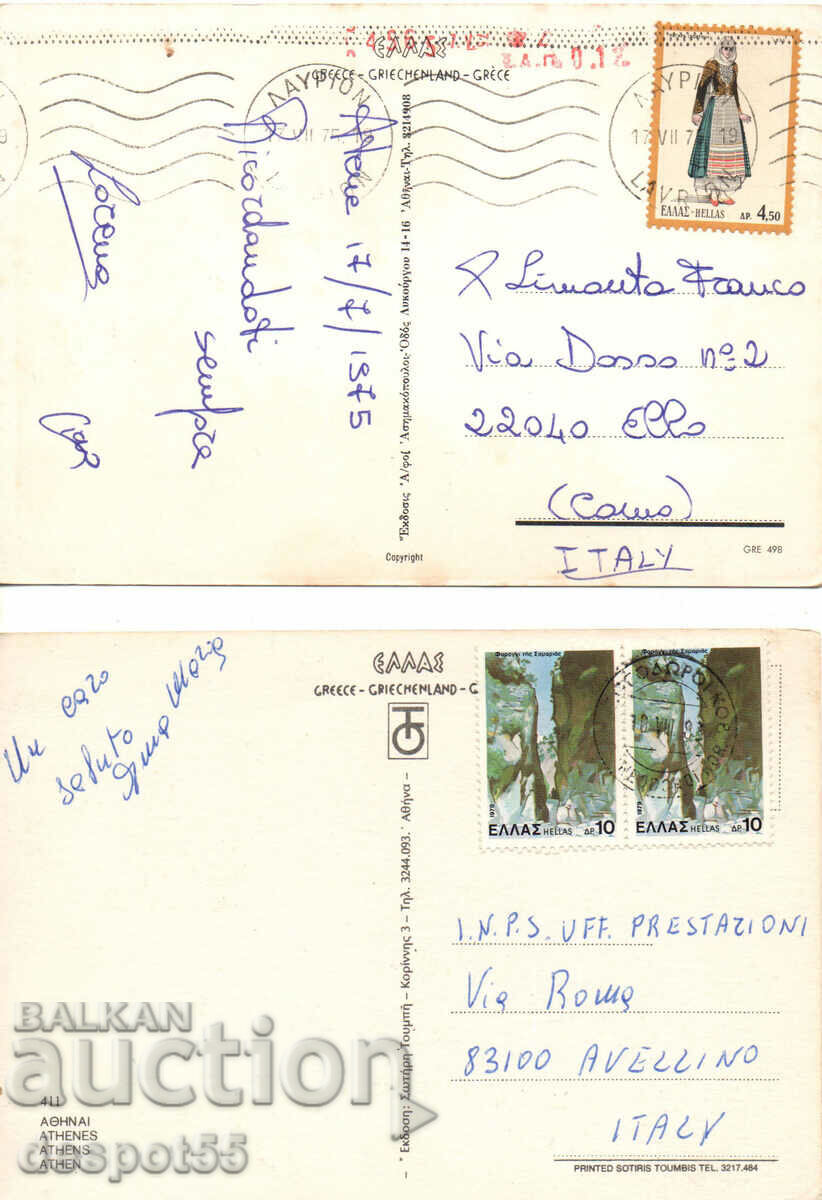 ΕΛΛΑΣ
GREECE - GRIECHENLAND - GRÈCE
ΛΑΥΡΙΟΝ
17 VII 75. 19
LAVRION
ΛΑΥΡΙΟΝ
17 VII 75. 19
LAVRION
ΕΛΛΑΣ-HELLAS ΔΡ. 4,50
Atene 17/7/1975
Ricordandoti
sempre
Lorena
Ciao
Ἔκδοσις Ἀ/φοί Ἀσημακόπουλοι-Ὁδός Λυκούργου 14-16 Ἀθῆναι-Τηλ. 3214908
Copyright
Limonta Franco
Via Dosso nº 2
22040 Ello
(Como)
ITALY
GRE 498
Un caro
saluto
Anna Maria
ΕΛΛΑΣ
GREECE - GRIECHENLAND - G
Φαράγγι τῆς Σαμαριᾶς
1979
ΕΛΛΑΣ HELLAS ΔΡ 10
Φαράγγι τῆς Σαμαριᾶς
1979
ΕΛΛΑΣ HELLAS ΔΡ 10
Ἔκδοση: Σωτήρη Τουμπῆ – Κορίννης 3 – Τηλ. 3244.093. Ἀθήνα –
I.N.P.S. UFF. PRESTAZIONI
Via Roma
83100 AVELLINO
ITALY
411
ΑΘΗΝΑΙ
ATHENES
ATHENS
ATHEN
PRINTED SOTIRIS TOUMBIS TEL. 3217.484
BALKAN
auction
despot55